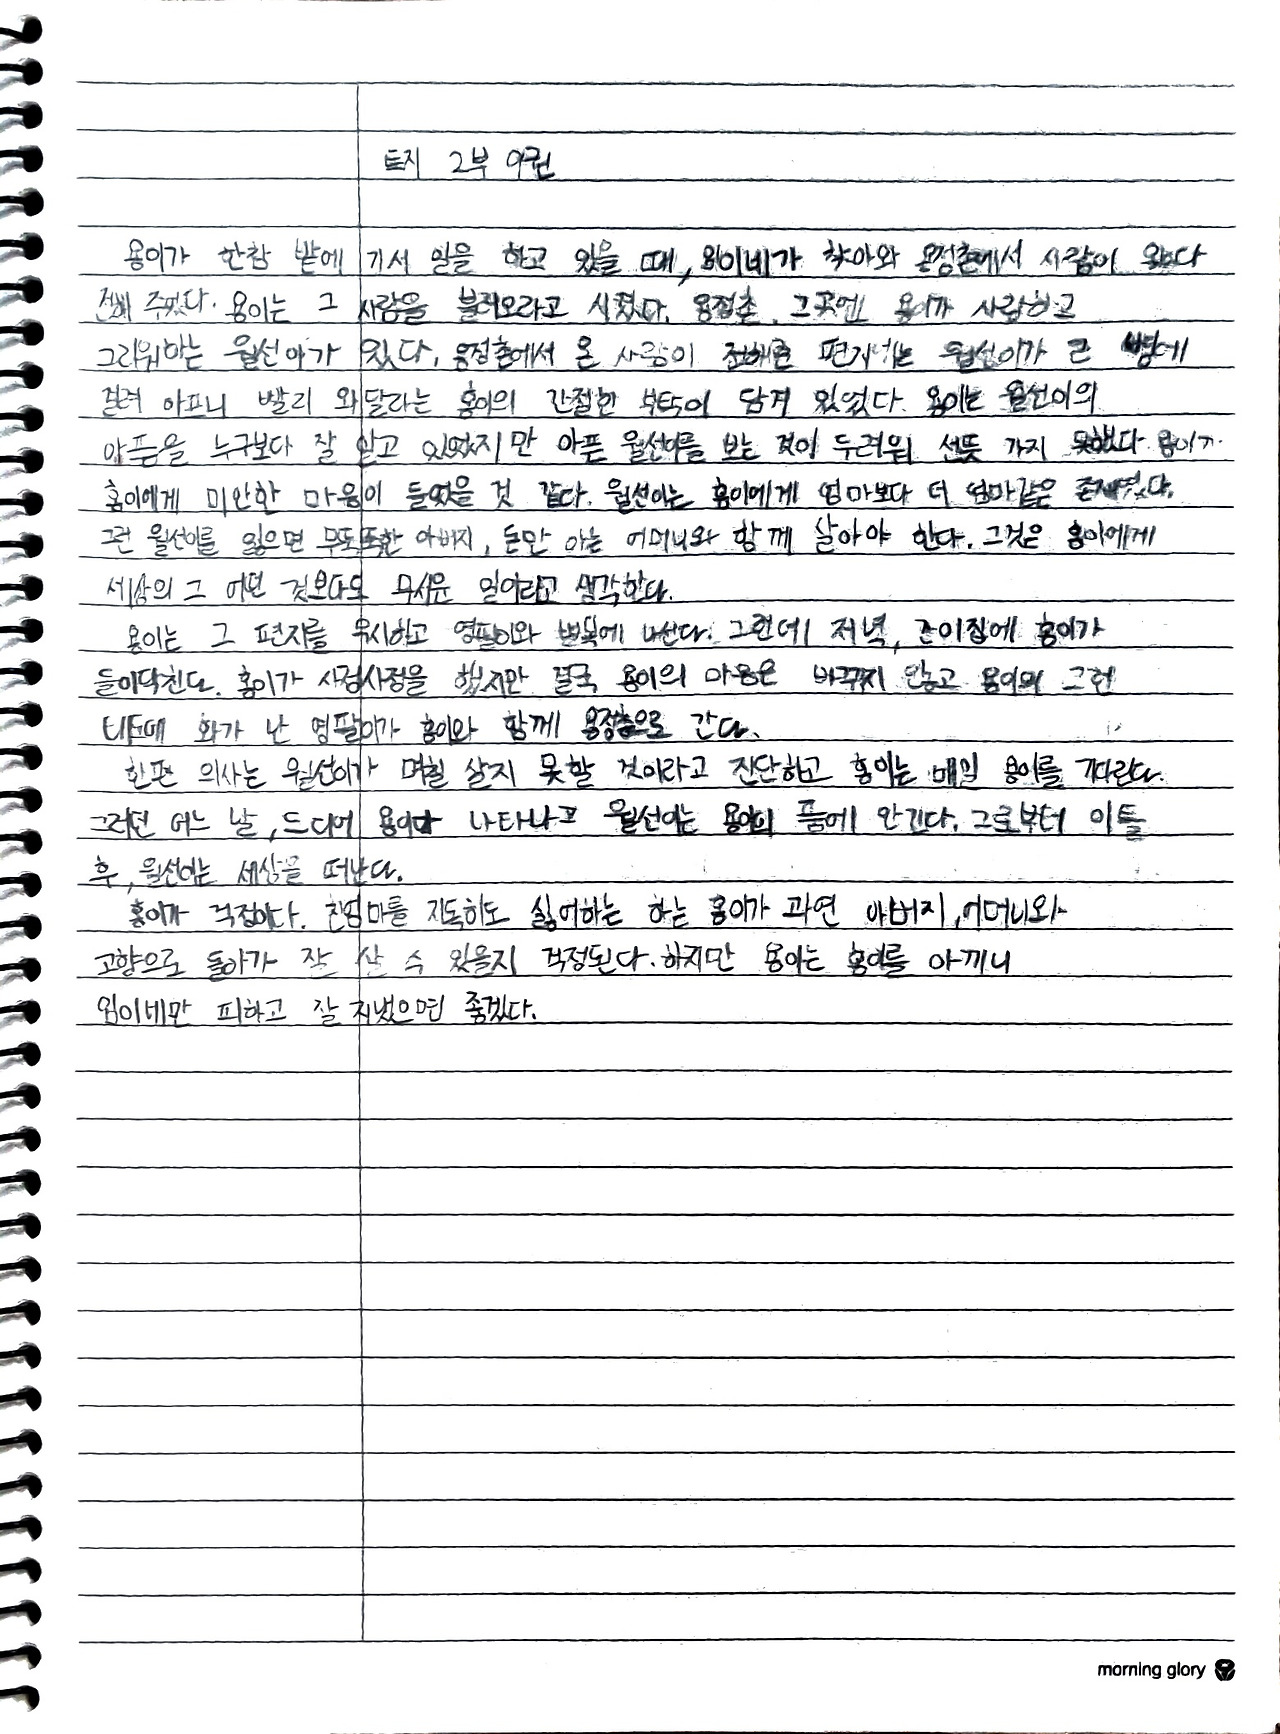 토지 2부 야권
용이가 한참 밭에 가서 일을 하고 있을 때, 임이네가 찾아와 용정촌에서 사람이 왔다
전해 주었다. 용이는 그 사람을 불러오라고 시켰다. 용정촌, 그곳엔 용이가 사랑하고
그리워하는 월선이가 있다. 용정촌에서 온 사람이 전해준 편지에는 월선이가 큰 병에
걸려 아프니 빨리 와달라는 홍이의 간절한 부탁이 담겨 있었다. 용이는 월선이의
아픔을 누구보다 잘 알고 있었지만 아픈 월선이를 보는 것이 두려워 선뜻 가지 못했다. 용이가
홍이에게 미안한 마음이 들었을 것 같다. 월선이는 홍이에게 엄마보다 더 엄마같은 존재였다.
그런 월선이를 잃으면 무뚝뚝한 아버지, 돈만 아는 어머니와 함께 살아야 한다. 그것은 홍이에게
세상의 그 어떤 것보다도 무서운 일이라고 생각한다.
용이는 그 편지를 무시하고 영팔이와 벌목에 나선다. 그런데 저녁, 간이집에 홍이가
들이닥친다. 홍이가 사정사정을 했지만 결국 용이의 마음은 바뀌지 않고 용이의 그런
태도에 화가 난 영팔이가 홍이와 함께 용정촌으로 간다.
한편 의사는 월선이가 며칠 살지 못할 것이라고 진단하고 홍이는 매일 용이를 기다린다.
그러던 어느 날, 드디어 용이가 나타나고 월선이는 용이의 품에 안긴다. 그로부터 이틀
후, 월선이는 세상을 떠난다.
홍이가 걱정이다. 친엄마를 지독히도 싫어하는 하는 홍이가 과연 아버지, 어머니와
고향으로 돌아가 잘 살 수 있을지 걱정된다. 하지만 용이는 홍이를 아끼니
임이네만 피하고 잘 지냈으면 좋겠다.
morning glory